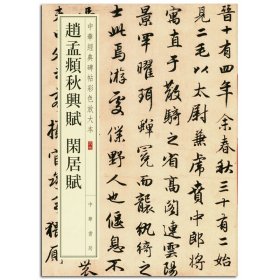 趙孟頫秋興賦 閑居賦
中華經典碑帖彩色放大本
中華書局
晉十有四年余春秋三十有二
以太尉掾兼虎賁中郎將
散騎之省高閣連雲陽
冕而襲紈綺之
士此焉游處
野人也偃息不